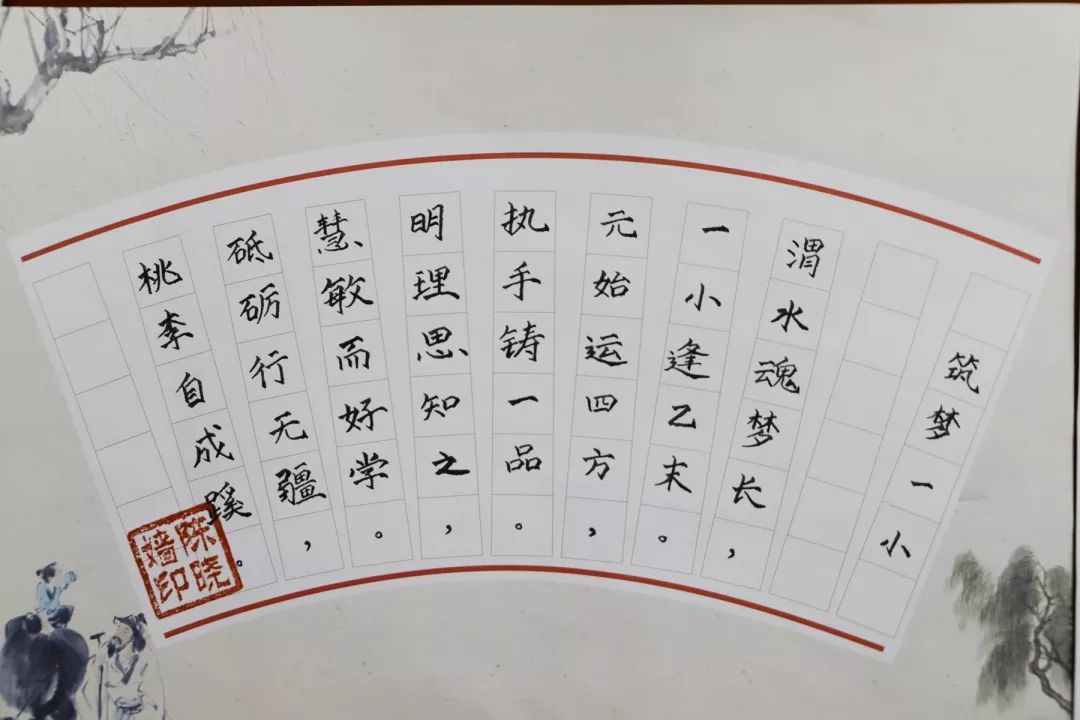 筑梦一小
渭水魂梦长，
一小逢乙末。
元始运四方，
执手铸一品。
明理思知之，
慧敏而好学。
砥砺行无疆，
桃李自成蹊。
陈晓嫱印